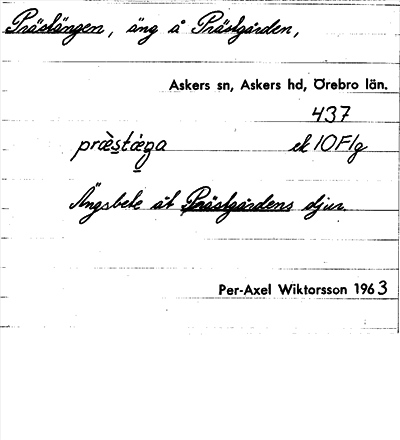 Prästängen, äng å Prästgården,
Askers sn, Askers hd, Örebro län.
437
præ̀s̱tǽṉa ek 10F1g
Ängsbete åt Prästgårdens djur.
Per-Axel Wiktorsson 1963